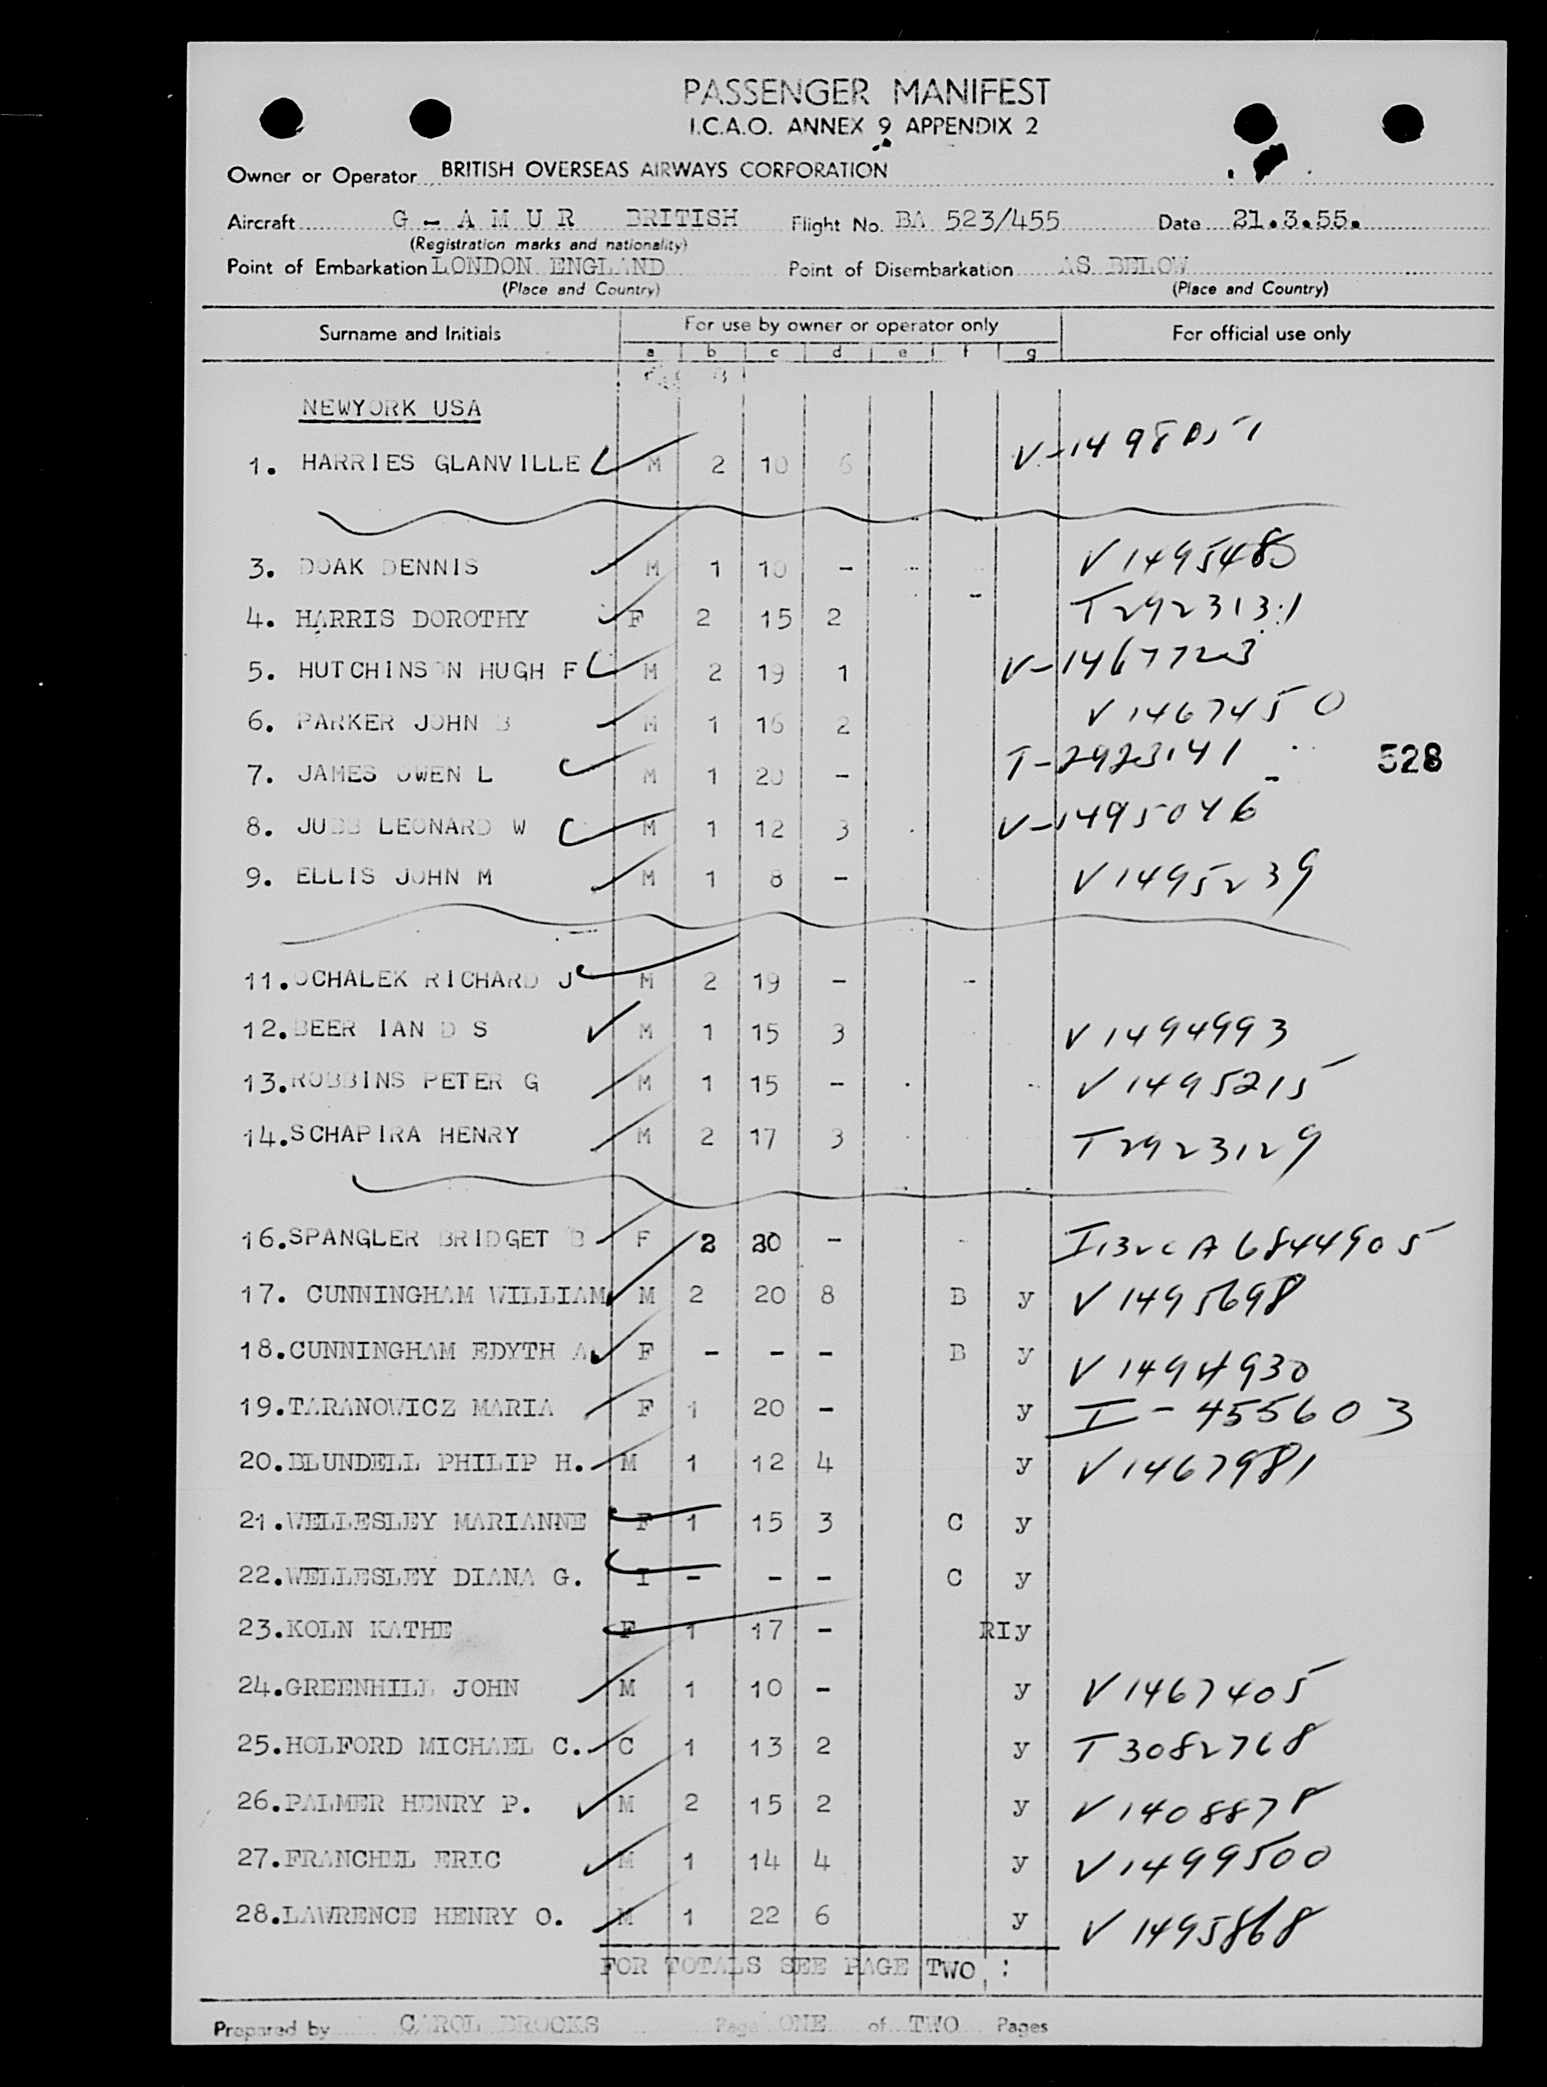 PASSENGER MANIFEST
I.C.A.O. ANNEX 9 APPENDIX 2
Owner or Operator BRITISH OVERSEAS AIRWAYS CORPORATION
Aircraft G - A M U R BRITISH Flight No. BA 523/455 Date 21.3.55.
(Registration marks and nationality)
Point of Embarkation LONDON ENGLAND Point of Disembarkation AS BELOW
(Place and Country) (Place and Country)
Surname and Initials For use by owner or operator only For official use only
a b c d e f g
NEWYORK USA
1. HARRIES GLANVILLE M 2 10 6 V-1498051
3. DOAK DENNIS M 1 10 - V1495485
4. HARRIS DOROTHY F 2 15 2 T2923131
5. HUTCHINSON HUGH F M 2 19 1 V-1467723
6. PARKER JOHN B M 1 16 2 V1467450
7. JAMES OWEN L M 1 20 - T-2923141 528
8. JUBB LEONARD W M 1 12 3 V-1495046
9. ELLIS JOHN M M 1 8 - V1495239
11. OCHALEK RICHARD J M 2 19 -
12. BEER IAN D S M 1 15 3 V1494993
13. ROBBINS PETER G M 1 15 - V1495215
14. SCHAPIRA HENRY M 2 17 3 T2923129
16. SPANGLER BRIDGET B F 2 20 - A6844905
17. CUNNINGHAM WILLIAM M 2 20 8 B y V1495698
18. CUNNINGHAM EDYTH A F - - - B y V1494930
19. TARANOWICZ MARIA F 1 20 - y I-455603
20. BLUNDELL PHILIP H. M 1 12 4 y V1467981
21. WELLESLEY MARIANNE F 1 15 3 C y
22. WELLESLEY DIANA G. I - - - C y
23. KOLN KATHE F 1 17 - RIy
24. GREENHILL JOHN M 1 10 - y V1467405
25. HOLFORD MICHAEL C. C 1 13 2 y T3082768
26. PALMER HENRY P. M 2 15 2 y V1408878
27. FRANCHEL ERIC M 1 14 4 y V1499500
28. LAWRENCE HENRY O. M 1 22 6 y V1495868
FOR TOTALS SEE PAGE TWO :
Prepared by CAROL BROOKS Page ONE of TWO Pages